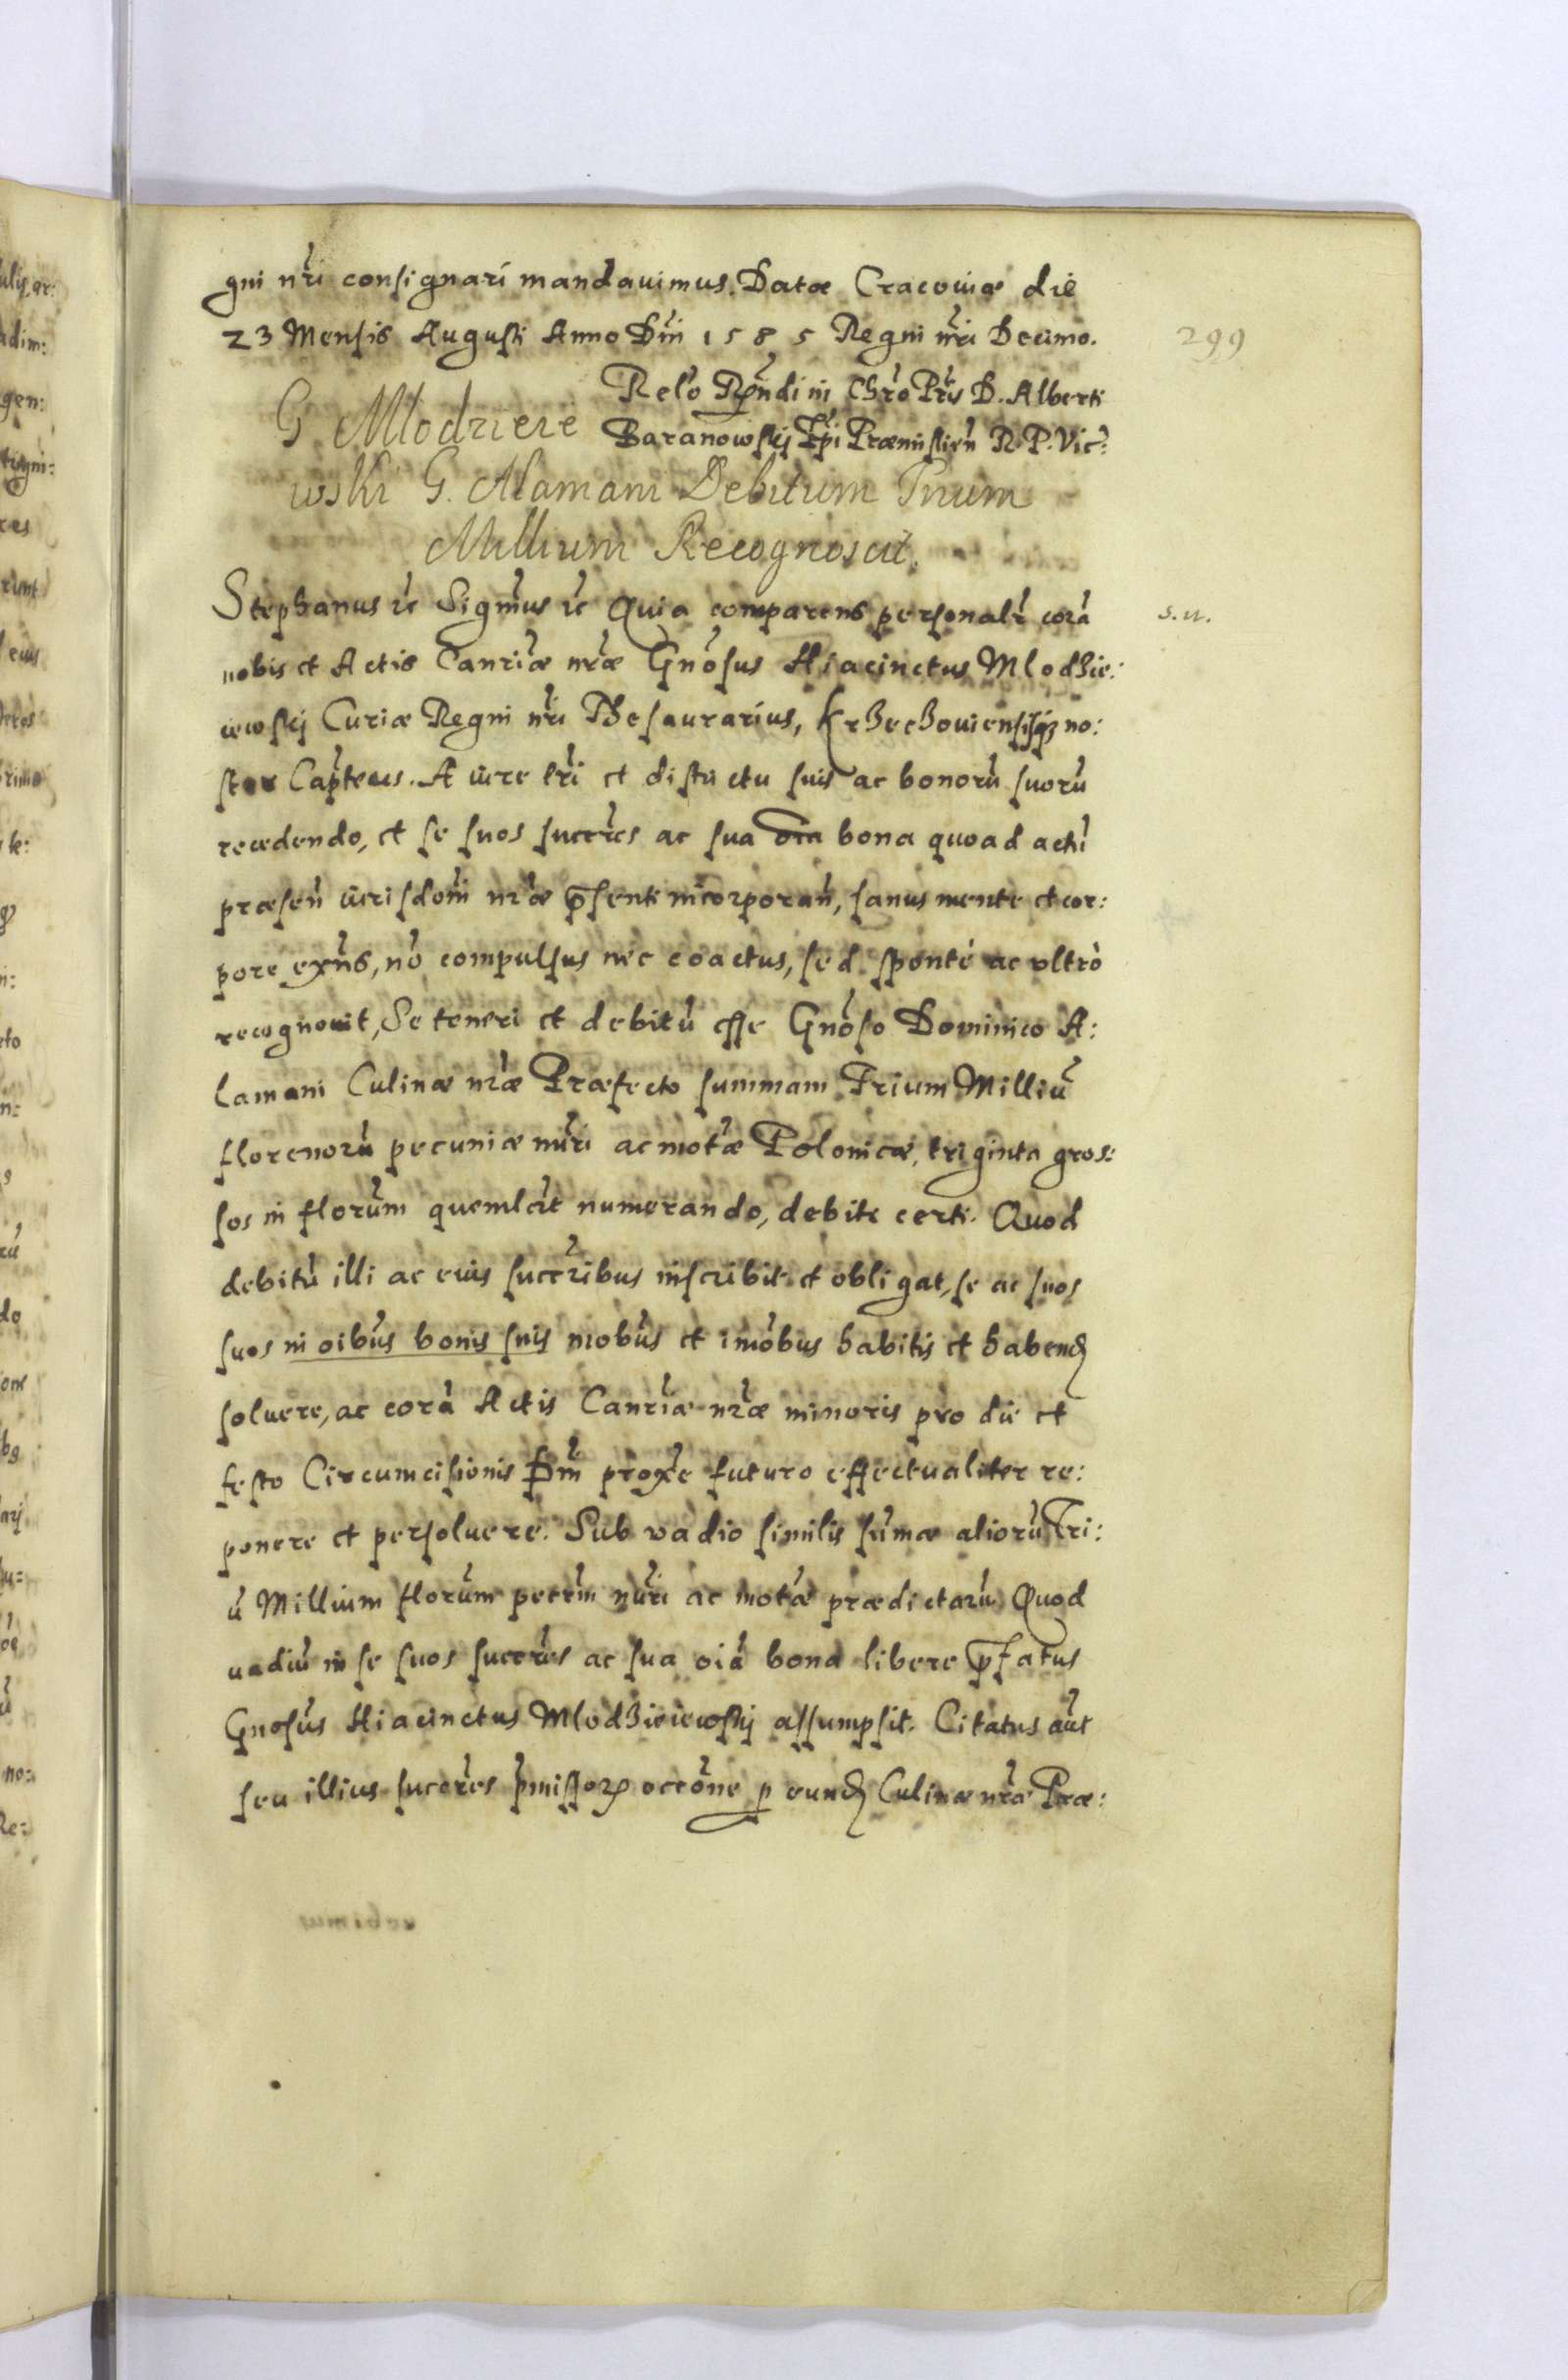 gni nr̃i consignari mandauimus. Datæ Cracouiæ die
23 Mensis Augusti Anno Dñi 1585 Regni nr̃i Decimo.
299
Relõ Rñdi in Chr̃o Pr̃is D. Alberti
Baranowskij Ep̃i Præmislień R. P. Vic:
G Mlodzieie
wski G. Alamani Debitum Trium
Millium Recognoscit.
Stephanus &c Sigm̃us &c Quia comparens personalr̃ corã
s. n.
nobis et Actis Canr̃iæ nr̃æ Gnõsus Hiacinctus Mlodzie:
iewskij Curiæ Regni nr̃i Thesaurarius, Krzeczouiensisq3 no:
ster Cap̃teus. A iure tr̃i et districtu suis ac bonorũ suorũ
recedendo, et se suos succr̃es ac sua oĩa bona quoad actũ
præseñ iurisdoñi nr̃æ p̃senti incorporañ, sanus mente et cor:
pore exñs, nõ compulsus nec coactus, sed sponte ac vltrò
recognouit, Se teneri et debitũ esse Gnõso Dominico A:
lamani Culinæ nr̃æ Præfecto summam Trium Milliũ
florenorũ pecuniæ nũri ac motæ̃ Polonicæ, triginta gros:
sos in florũm quemlɩ̃t numerando, debite certi. Quod
debitũ illi ac eius succr̃ibus inscribit et obligat, se ac suos
suos in oĩbus bonis suis mobũs et imõbus habitis et habend
soluere, ac corã Actis Canr̃iæ nr̃æ minoris pro die et
festo Circumcisionis Dñi prox̃e futuro effectualiter re:
ponere et persoluere. Sub vadio similis sũmæ aliorũ Tri:
ũ Millium florũm pecr̃m nũri ac motæ̃ prædictarũ Quod
uadiũ in se suos succr̃es ac sua oĩa bona libere p̃fatus
Gnosũs Hiacinctus Mlodzieiewskij assumpsit. Citatus aũt
seu illius succr̃es p̃missorꝝ occõne p eund Culinæ nr̃æ Præ: